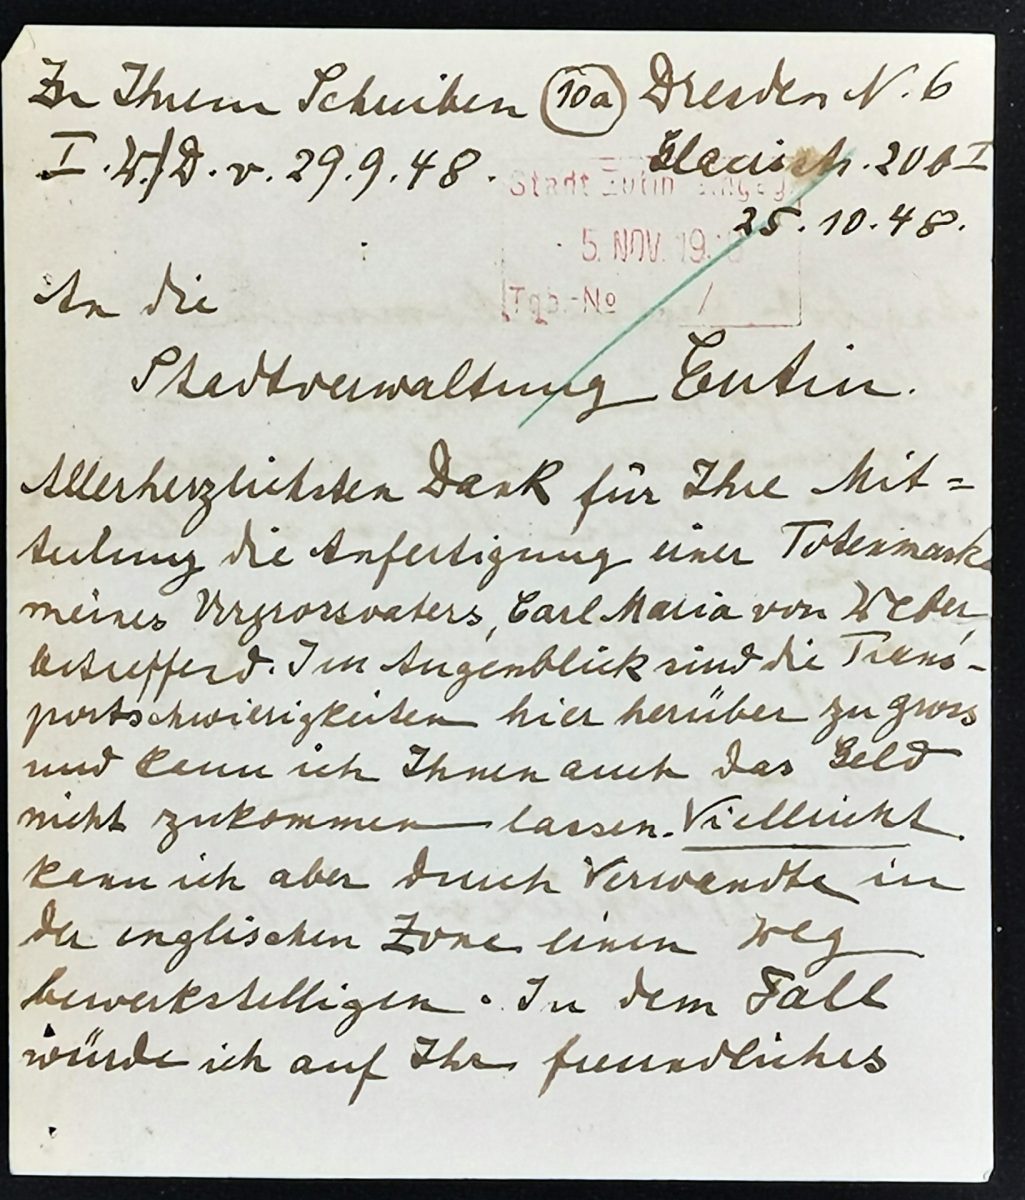 Zu Ihrem Schreiben (10a) Dresden N. 6
I. W./D. v. 29.9.48. Glacisstr. 20b I
25.10.48.
Stadt Eutin Eingeg.
5. NOV. 19
Tgb.-No /
An die
Stadtverwaltung Eutin.
Allerherzlichsten Dank für Ihre Mit=
teilung die Anfertigung einer Totenmaske
meines Urgrossvaters, Carl Maria von Weber,
betreffend. Im Augenblick sind die Trans-
portschwierigkeiten hier herüber zu gross
und kann ich Ihnen auch das Geld
nicht zukommen lassen. Vielleicht
kann ich aber durch Verwandte in
der englischen Zone einen Weg
bewerkstelligen. In dem Fall
würde ich auf Ihr freundliches